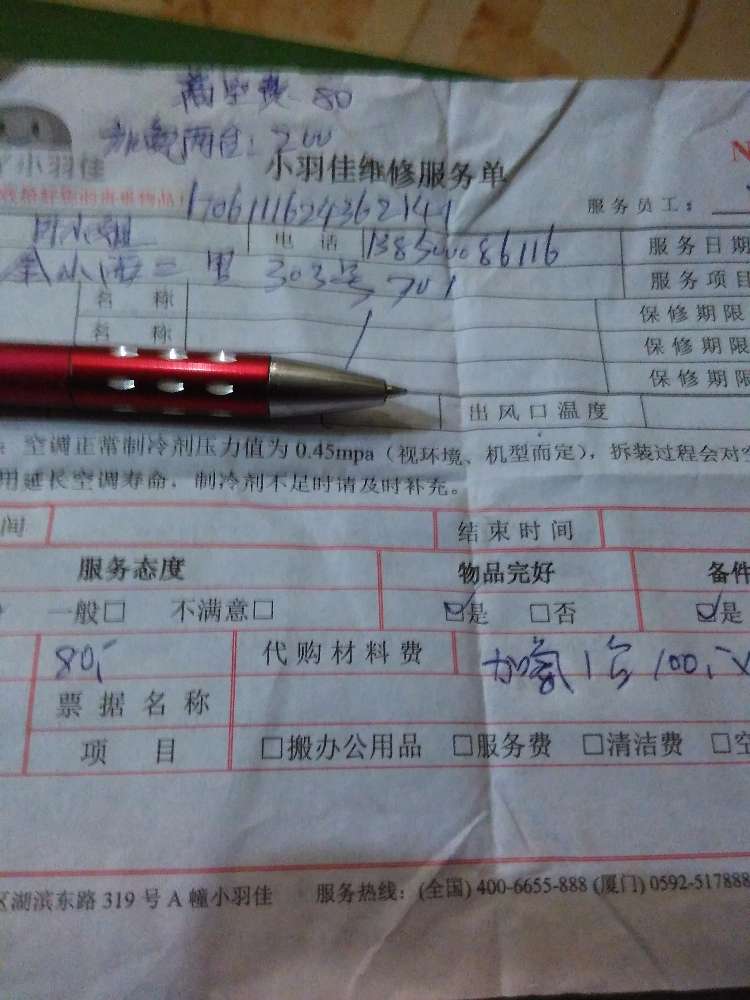 高空费 80
加氟两台:200
小羽佳
小羽佳维修服务单
N
服务员工:
170611162436214
电 话 13850086116 服务日期
二里 303号 701 服务项目
名 称 保修期限
名 称 保修期限
保修期限
出风口温度
空调正常制冷剂压力值为 0.45mpa(视环境、机型而定),拆装过程会对空
用延长空调寿命,制冷剂不足时请及时补充。
间 结束时间
服务态度 物品完好 备件
一般□ 不满意□ ☑是 □否 ☑是
80,- 代购材料费 加氟1台100,-
票据名称
项 目 □搬办公用品 □服务费 □清洁费 □空
区湖滨东路 319 号 A 幢小羽佳 服务热线:(全国) 400-6655-888 (厦门) 0592-517888